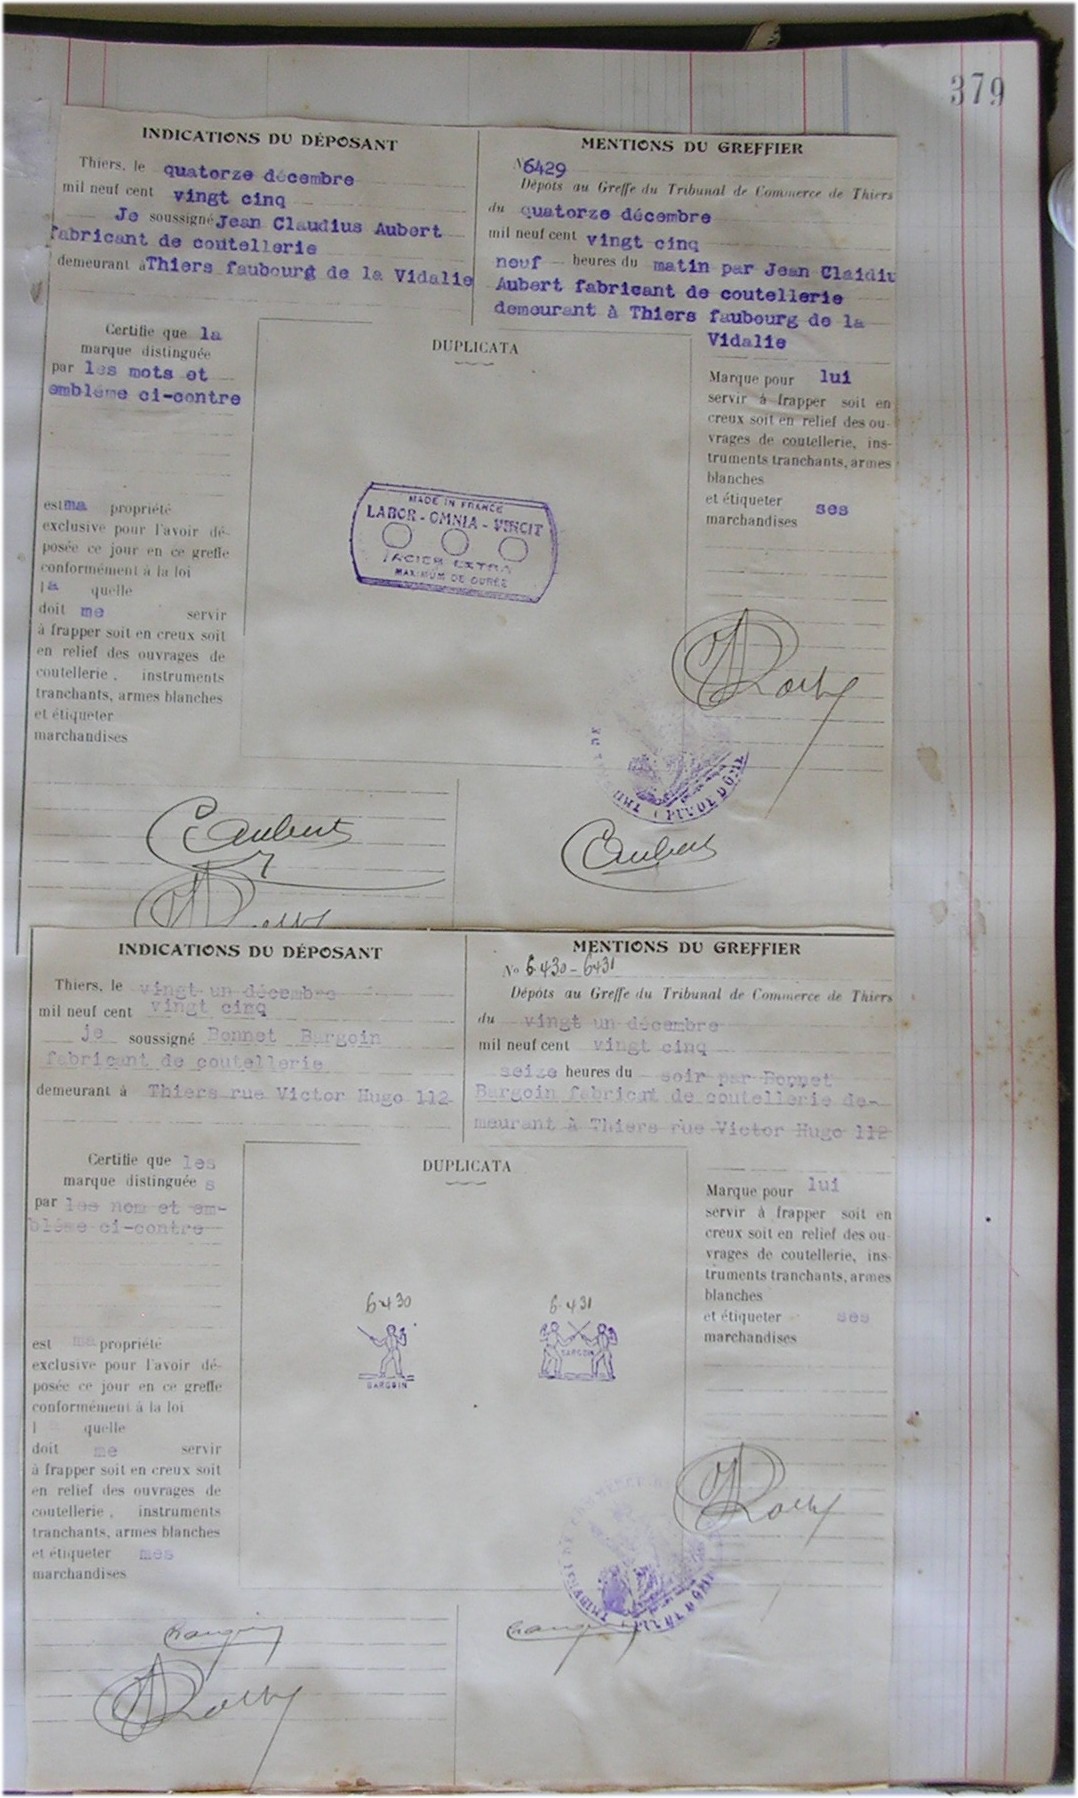 379
INDICATIONS DU DÉPOSANT
Thiers, le quatorze décembre
mil neuf cent vingt cinq
Je soussigné Jean Claudius Aubert
fabricant de coutellerie
demeurant à Thiers faubourg de la Vidalie
MENTIONS DU GREFFIER
N° 6429
Dépôts au Greffe du Tribunal de Commerce de Thiers
du quatorze décembre
mil neuf cent vingt cinq
neuf heures du matin par Jean Claidiu
Aubert fabricant de coutellerie
demeurant à Thiers faubourg de la
Vidalie
Certifie que la
marque distinguée
par les mots et
embléme ci-contre
est ma propriété
exclusive pour l'avoir dé-
posée ce jour en ce greffe
conformément à la loi
la quelle
doit me servir
à frapper soit en creux soit
en relief des ouvrages de
coutellerie, instruments
tranchants, armes blanches
et étiqueter
marchandises
DUPLICATA
MADE IN FRANCE
LABOR - OMNIA - VINCIT
ACIER EXTRA
MAXIMUM DE DURÉE
Marque pour lui
servir à frapper soit en
creux soit en relief des ou-
vrages de coutellerie, ins-
truments tranchants, armes
blanches
et étiqueter ses
marchandises
C Aubert
C Aubert
INDICATIONS DU DÉPOSANT
Thiers, le vingt un décembre
mil neuf cent vingt cinq
je soussigné Bonnet Bargoin
fabricant de coutellerie
demeurant à Thiers rue Victor Hugo 112
MENTIONS DU GREFFIER
No 6430-6431
Dépôts au Greffe du Tribunal de Commerce de Thiers
du vingt un décembre
mil neuf cent vingt cinq
seize heures du soir par Bonnet
Bargoin fabricant de coutellerie de-
meurant à Thiers rue Victor Hugo 112
Certifie que les
marque distinguée s
par les nom et em-
bléme ci-contre
est ma propriété
exclusive pour l'avoir dé-
posée ce jour en ce greffe
conformément à la loi
l quelle
doit me servir
à frapper soit en creux soit
en relief des ouvrages de
coutellerie, instruments
tranchants, armes blanches
et étiqueter mes
marchandises
DUPLICATA
6430
BARGOIN
6431
BARGOIN
Marque pour lui
servir à frapper soit en
creux soit en relief des ou-
vrages de coutellerie, ins-
truments tranchants, armes
blanches
et étiqueter ses
marchandises